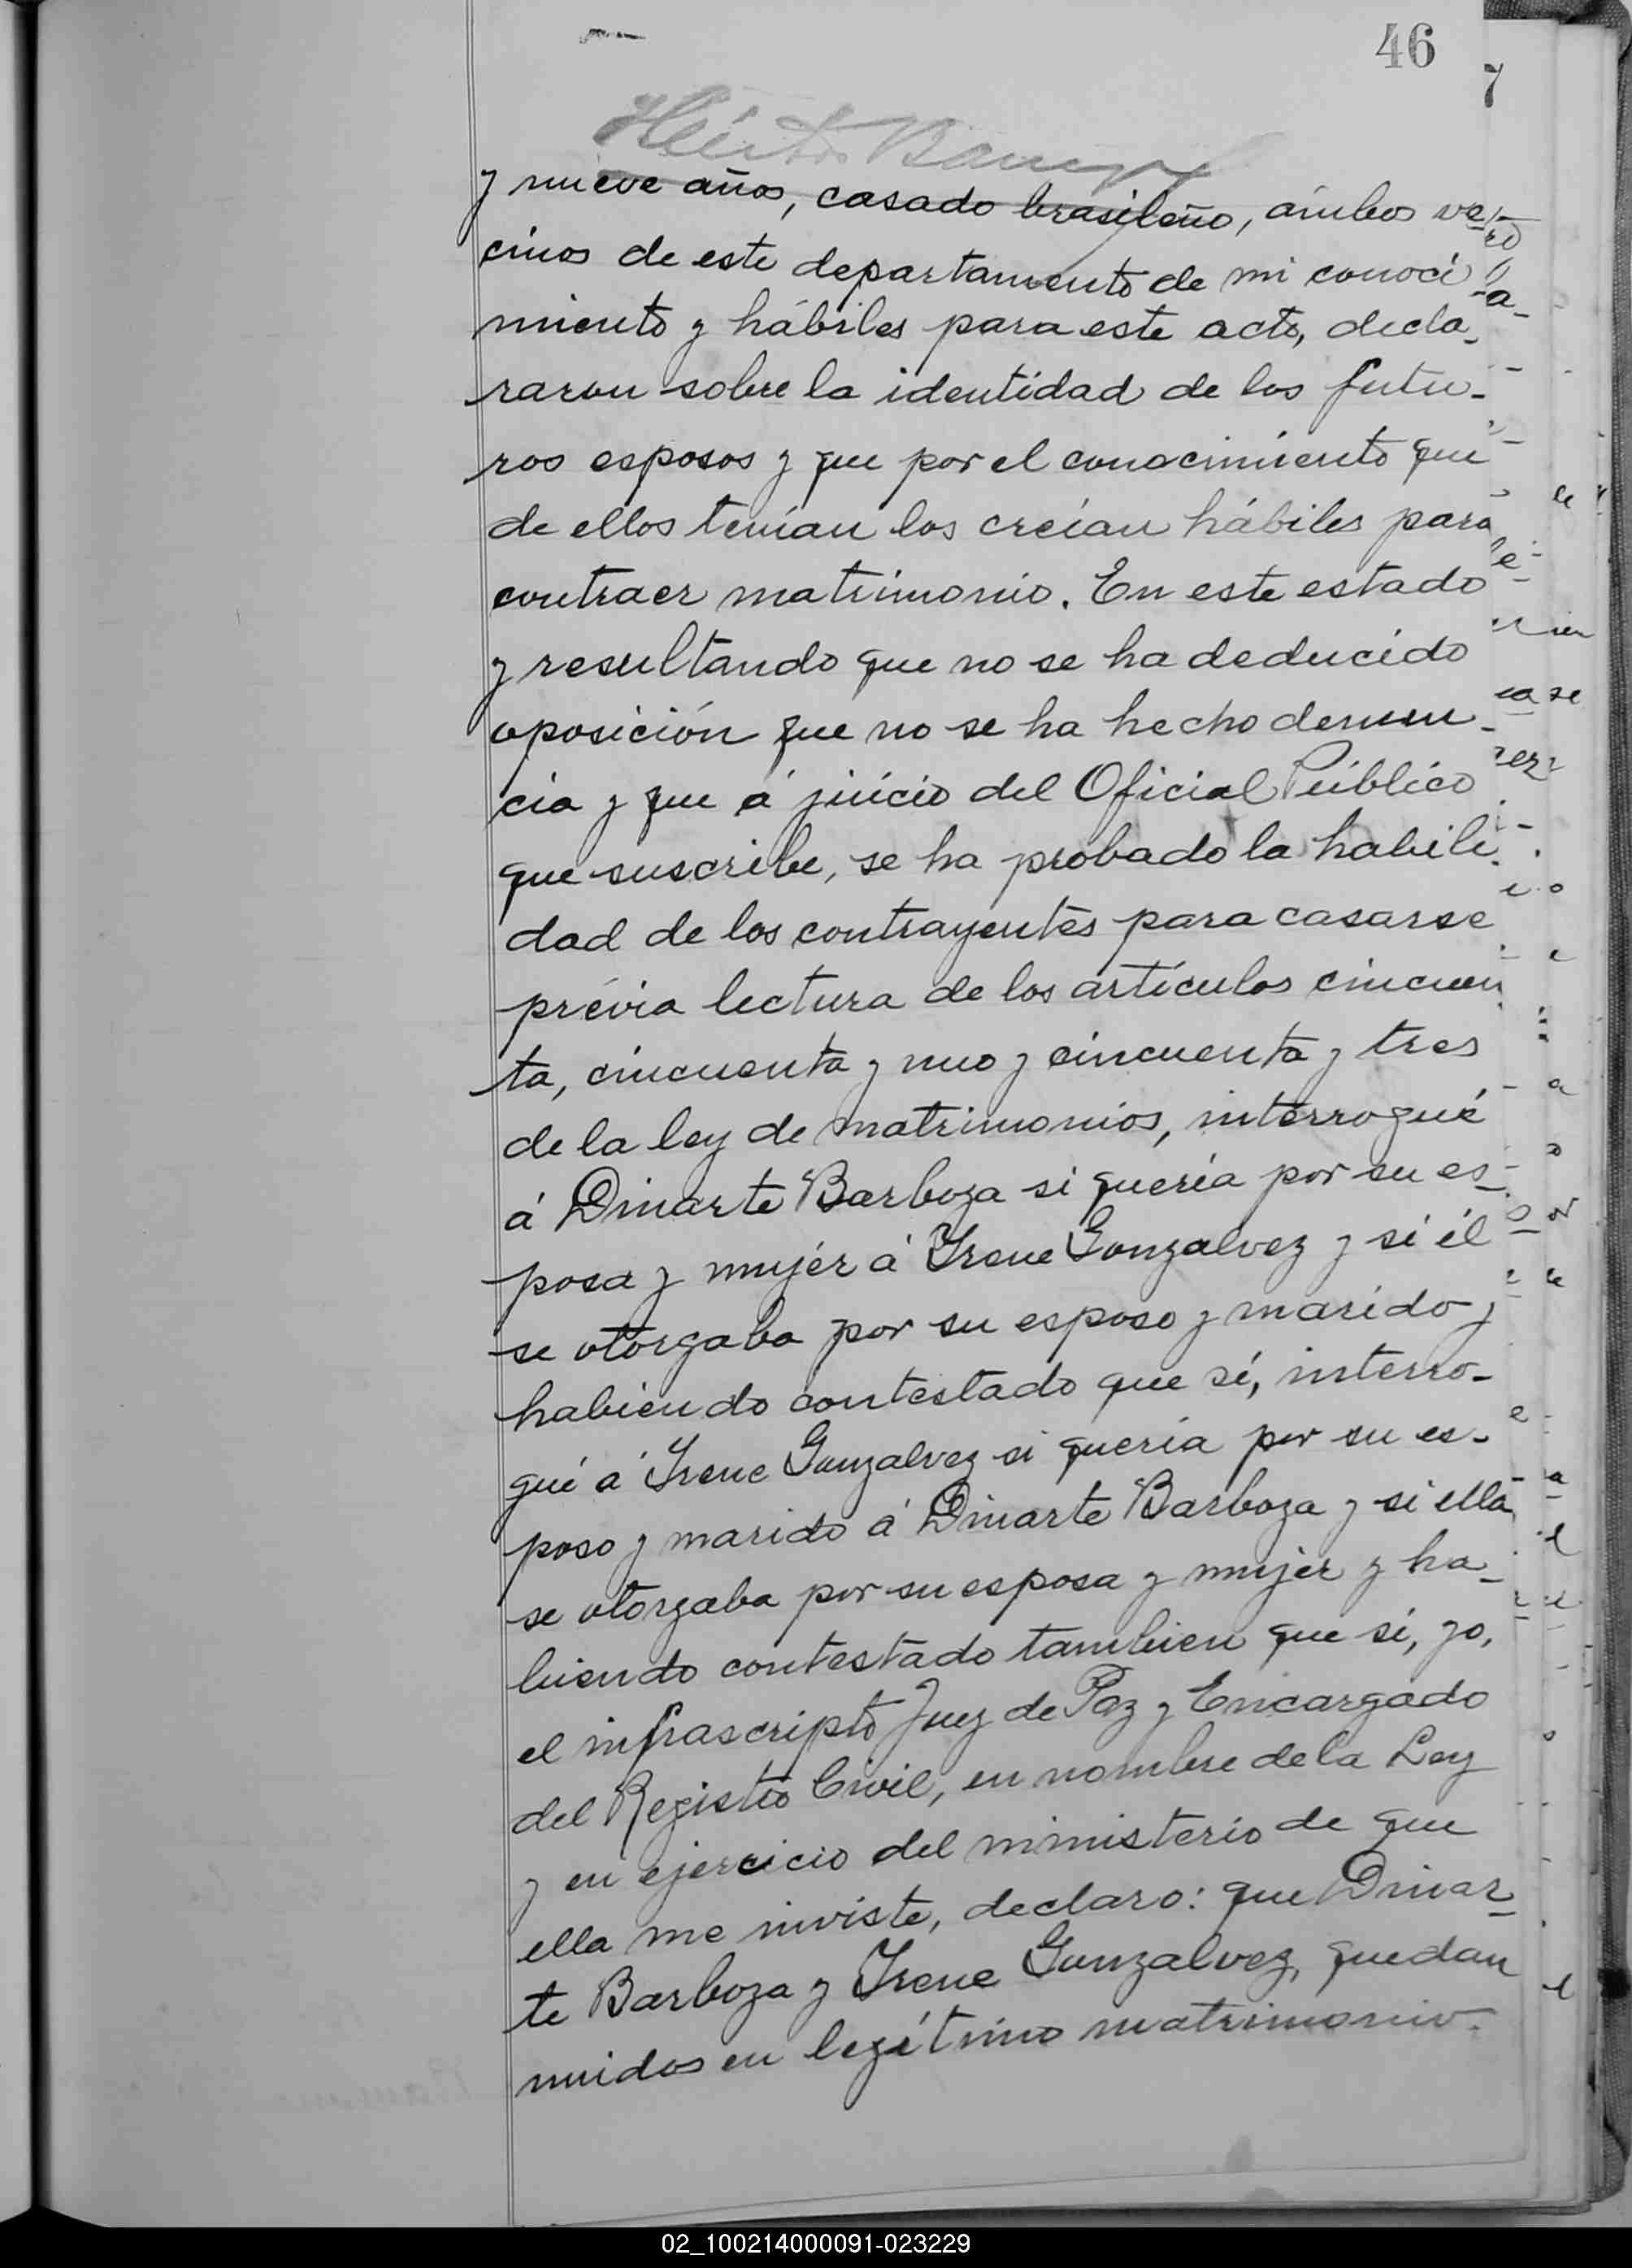 46
7
y nueve años, casado brasileño, ámbos ve-
cinos de este departamento de mi conoci
miento y hábiles para este acto, decla-
raron sobre la identidad de los futu-
ros esposos y que por el conocimiento que
de ellos tenían los creían hábiles para
contraer matrimonio. En este estado
y resultando que no se ha deducido
oposición que no se ha hecho denun-
cia y que á juicio del Oficial Público
que suscribe, se ha probado la habili-
dad de los contrayentes para casarse
prévia lectura de los artículos cincuen
ta, cincuenta y uno y cincuenta y tres
de la ley de matrimonios, interrogué
á Dinarte Barboza si quería por su es-
posa y mujér á Irene Gonzalvez y si él
se otorgaba por su esposo y marido y
habiendo contestado que sí, interro-
gué á Irene Gonzalvez si quería por su es-
poso y marido á Dinarte Barboza y si ella
se otorgaba por su esposa y mujer y ha-
biendo contestado tambien que sí, yo,
el infrascripto Juez de Paz y Encargado
del Registro Civil, en nombre de la Ley
y en ejercicio del ministerio de que
ella me inviste, declaro: que Dinar-
te Barboza y Irene Gonzalvez, quedan
unidos en legítimo matrimonio.
02_100214000091-023229